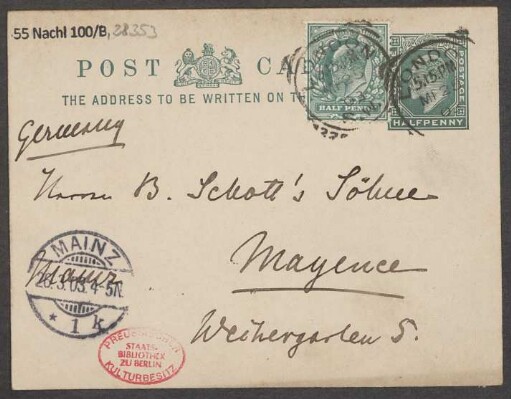 55 Nachl 100/B, 28353
POST CA
THE ADDRESS TO BE WRITTEN ON T
HALF PENNY
POSTAGE
HALFPENNY
LONDON
5.15 PM
Germany
Herren B. Schott's Söhne
Mayence
Weihergarten 5.
MAINZ
Mainz
28.3.03.4-5N.
* 1 k
PREUSSISCHER
STAATS-
BIBLIOTHEK
ZU BERLIN
KULTURBESITZ